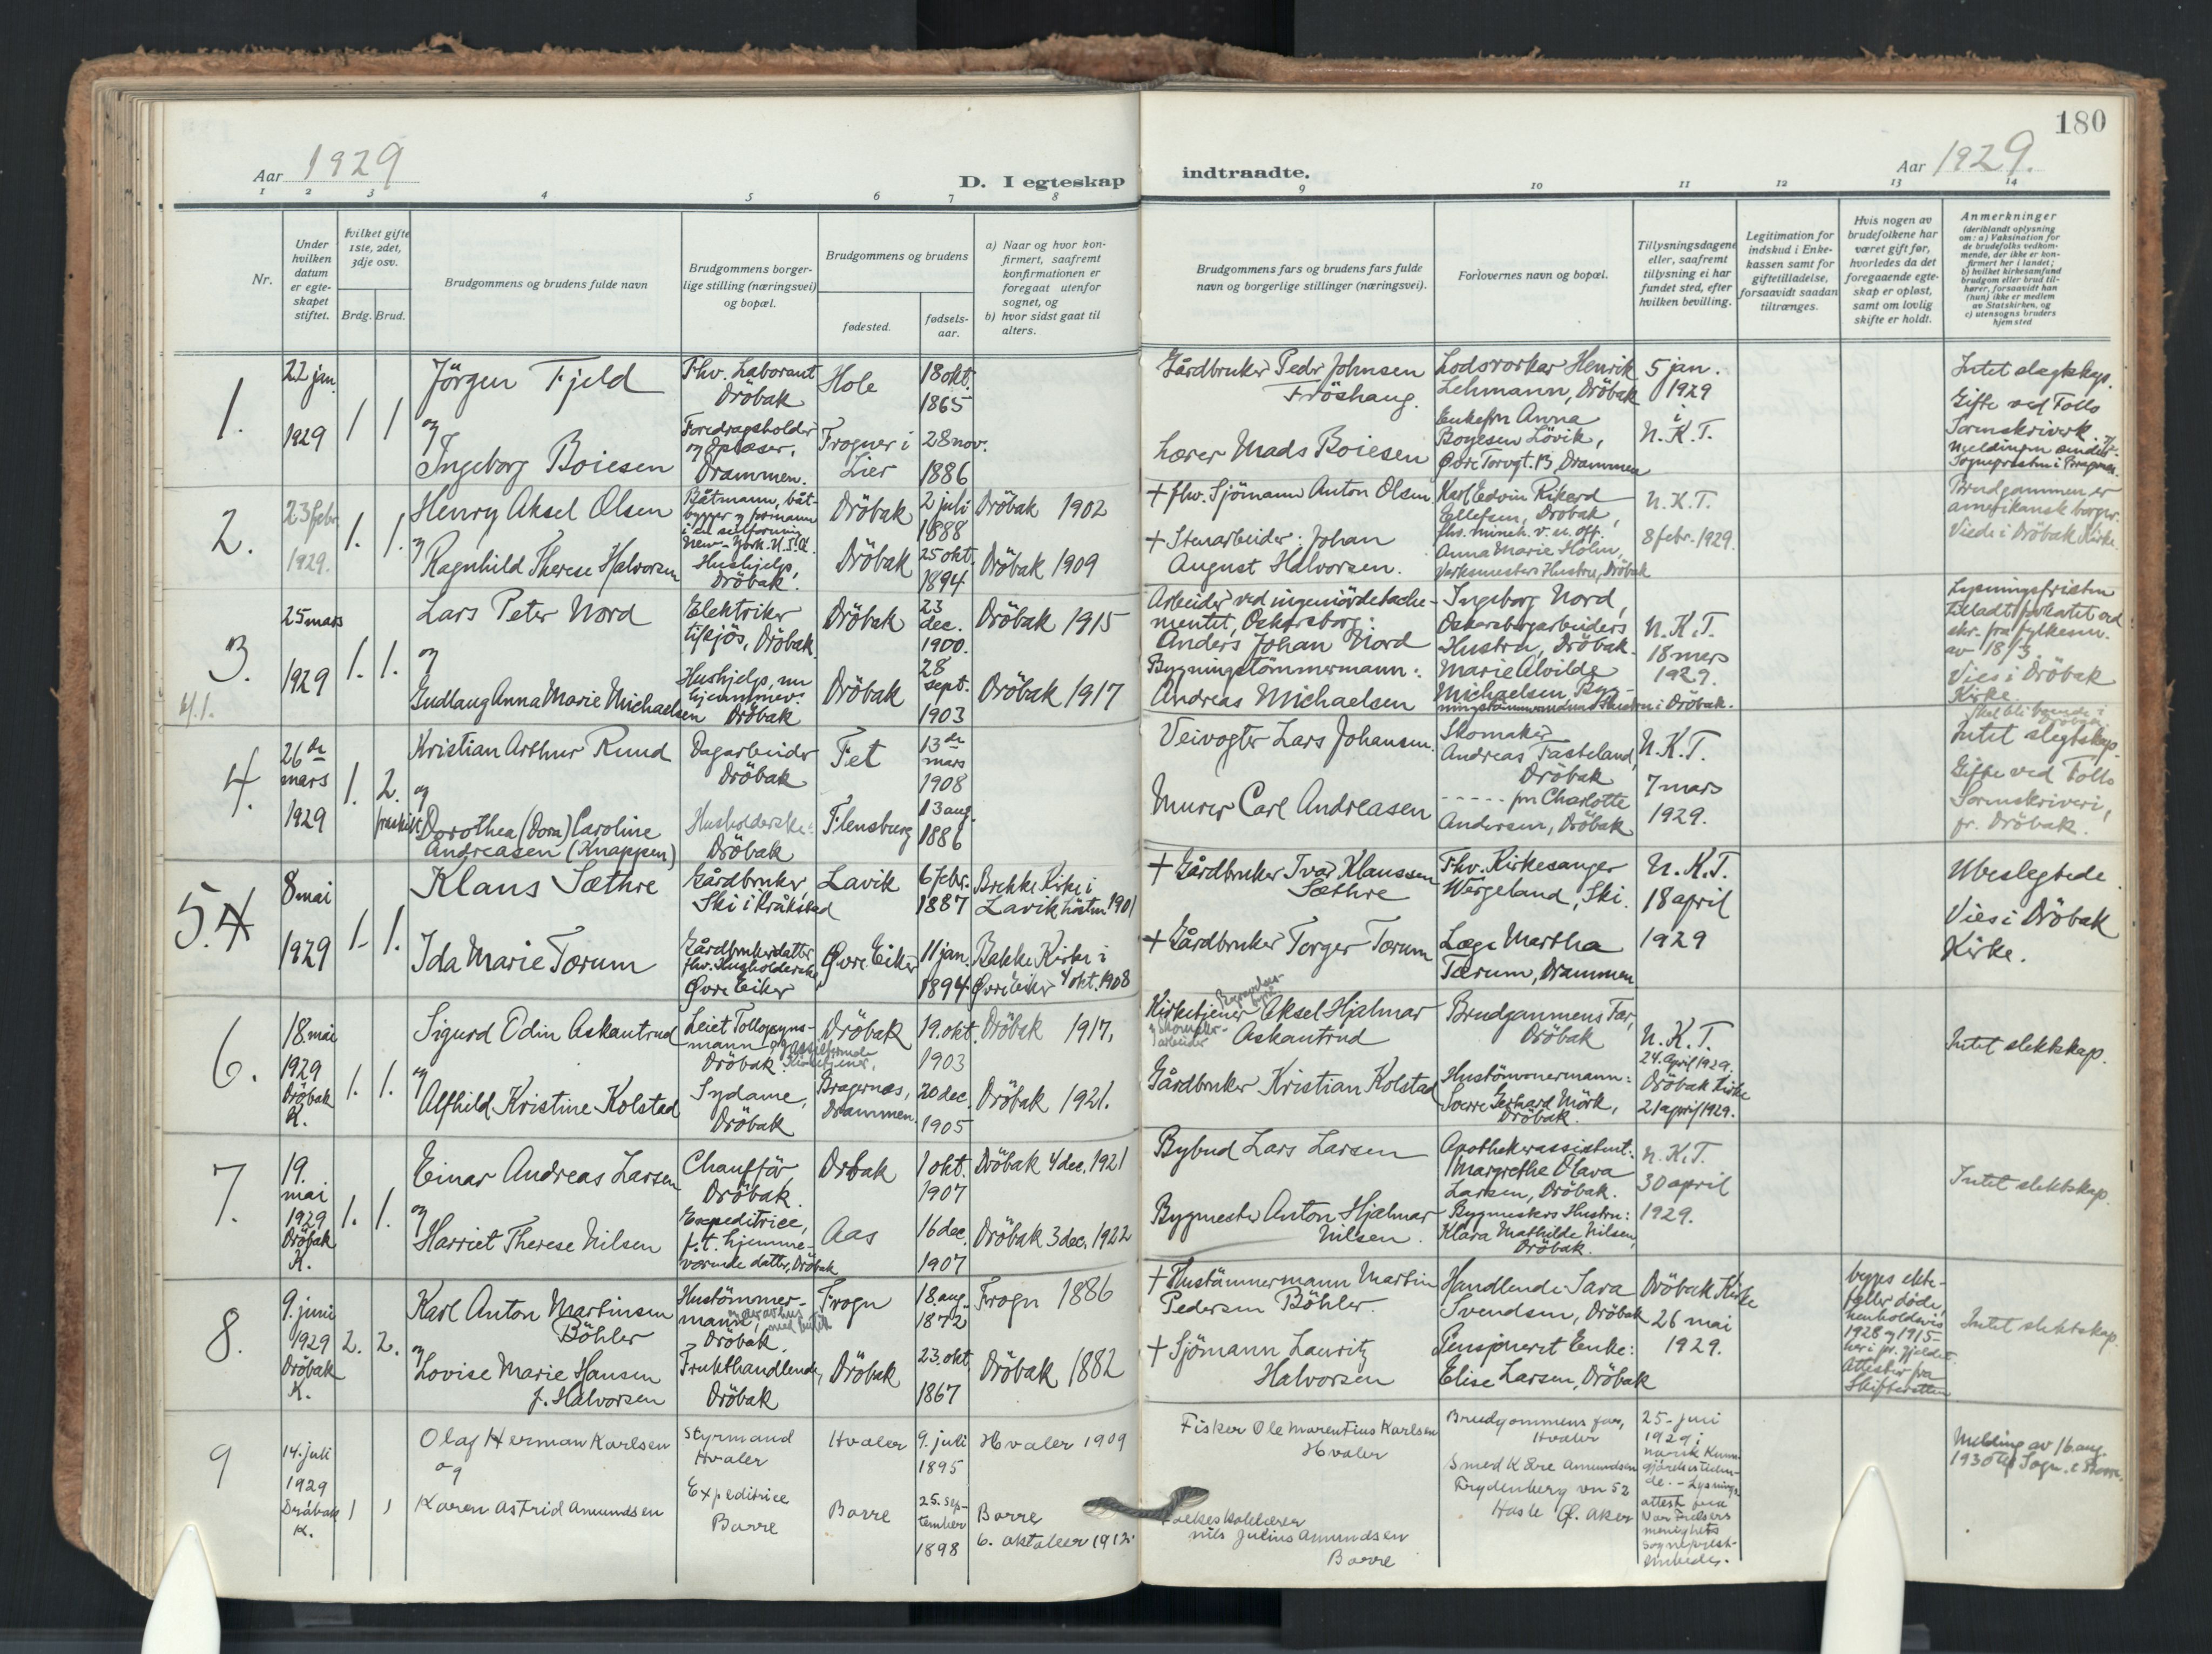 180
Aar 1929
D. I egteskap indtraadte.
Aar 1929.
1 2 3 4 5 6 7 8 9 10 11 12 13 14
Nr.
Under hvilken datum er egteskapet stiftet.
hvilket gifte 1ste, 2det, 3dje osv.
Brdg. Brud.
Brudgommens og brudens fulde navn
Brudgommens borgerlige stilling (næringsvei) og bopæl.
Brudgommens og brudens
fødested.
fødselsaar.
a) Naar og hvor konfirmert, saafremt konfirmationen er foregaat utenfor sognet, og
b) hvor sidst gaat til alters.
Brudgommens fars og brudens fars fulde navn og borgerlige stillinger (næringsvei).
Forlovernes navn og bopæl.
Tillysningsdagene eller, saafremt tillysning ei har fundet sted, efter hvilken bevilling.
Legitimation for indskud i Enkekassen samt for giftetilladelse, forsaavidt saadan tiltrænges.
Hvis nogen av brudefolkene har været gift før, hvorledes da det foregaaende egteskap er opløst, samt om lovlig skifte er holdt.
Anmerkninger
(deriblandt oplysning om: a) Vaksination for de brudefolks vedkommende, der ikke er konfirmert her i landet;
b) hvilket kirkesamfund brudgom eller brud tilhører, forsaavidt han (hun) ikke er medlem av Statskirken, og
c) utensogns bruders hjemsted
1.
22 jan.
1929
1 1
Jörgen Fjeld
og
Ingeborg Boiesen
Fhv. Laborant
Dröbak
Foredragsholder
og Oplæser.
Drammen.
Hole
Frogner i
Lier
18 okt.
1865
28 nov.
1886
Gårdbruker Peder Johnsen
Fröshaug.
Lærer Mads Boiesen
Lodsvorker Henrik
Lehmann, Dröbak
Enkefru Anna
Boyesen Lövik,
Øvre Torvgt. 13, Drammen
5 jan.
1929
i
N. K. T.
Intet slegtskap.
Gifte ved Follo
Sorenskriverk.
2.
23 febr.
1929.
1. 1.
Henry Aksel Olsen
og
Ragnhild Therese Halvorsen
Båtmann, båt-
bygger og formann
New-York. U.S.A.
Hushjelp,
Dröbak.
Dröbak
Dröbak
2 juli
1888
25 okt.
1894
Dröbak 1902
Dröbak 1909
+ fhv. Sjömann Anton Olsen
+ Stenarbeider: Johan
August Halvorsen.
Karl Edvin Rikard
Ellefsen, Dröbak,
fhv. minek. u. off.
Anna Marie Holm,
Verksmesters Hustru, Dröbak
N. K. T.
8 febr. 1929.
Brudgommen er
amerikansk borger.
Viede i Dröbak Kirke.
3.
4.1.
25 mars
1929
1. 1.
Lars Peter Nord
og
Gudlaug Anna Marie Michaelsen
Elektriker
tilsjös, Dröbak.
Hushjelp, nu
hjemmev.
Dröbak
Dröbak
Dröbak
23
dec.
1900.
28
sept.
1903
Dröbak 1915
Dröbak 1917
Arbeider ved ingeniördetache-
mentet, Oskarsborg:
Anders Johan Nord
Bygningstömmermann:
Andreas Michaelsen
Ingeborg Nord,
Oskarsborgarbeiders
Hustru, Dröbak.
Marie Alvilde
Michaelsen Byg-
ningstömmermanns Hustru i Dröbak.
N. K. T.
18 mars
1929.
Lysningsfristen
tilladt forkortet ved
skr. fra fylkesm.
av 18/3.
Vies i Dröbak
Kirke.
4.
26de
mars
1929
1. 2.
fraskilt
Kristian Arthur Rund
og
Dorothea (Dora) Caroline
Andreasen (Knappen)
Dagarbeider
Dröbak
Husholderske:
Dröbak
Fet
Flensburg
13de
mars
1908
13 aug.
1886
Veivogter Lars Johansen.
Murer Carl Andreasen
Skomaker
Andreas Fasteland,
Dröbak
----- fru Charlotte
Andersen, Dröbak
N. K. T.
7 mars
1929.
Intet slegtskap.
Gifte ved Follo
Sorenskriveri,
pr. Dröbak.
5. 4
8 mai
1929
1. 1.
Klaus Sæthre
Ida Marie Torum
Gårdbruker,
Ski i Kråkstad
Gårdbrukerdatter
fhv. Husholderske
Øvre Eiker
Lavik
Øvre Eiker
6 febr.
1887
11 jan.
1894.
Brekke Kirke i
Lavik hösten 1901
Bakke Kirke i
Øvre Eiker 4 okt. 1908
+ Gårdbruker Ivar Klaussen
Sæthre
+ Gårdbruker Torger Torum
Fhv. Kirkesanger
Wergeland, Ski.
Læge Martha
Tærum, Drammen
N. K. T.
18 april
1929
Ubeslegtede.
Vies i Dröbak
Kirke.
6.
18. mai
1929
Dröbak
K.
1. 1.
Sigurd Odin Askautrud
og
Alfhild Kristine Kolstad
Leiet Tollopsyns-
mann og assisterende
Dröbak. Kirketjener.
Sydame,
Dröbak
Dröbak
Bragernæs,
Drammen.
19. okt.
1903
20 dec.
1905
Dröbak 1917.
Dröbak 1921.
Kirketjener Aksel Hjalmar
Askautrud
Gårdbruker Kristian Kolstad
Brudgommens Far,
Dröbak
Hustömmermann:
Sverre Gerhard Mörk,
Dröbak.
N. K. T.
24. April 1929.
Dröbak Kirke
21 april 1929.
Intet slektskap.
7.
19.
mai
1929
Dröbak
K.
1. 1.
Einar Andreas Larsen
og
Harriet Therese Nilsen
Chaufför,
Dröbak.
Expeditrice,
f.t. hjemme-
værende datter, Dröbak
Dröbak
Aas
1 okt.
1907
16 dec.
1907
Dröbak 4 dec. 1921
Dröbak 3 dec. 1922
Bybud Lars Larsen
Bygmester Anton Hjalmar
Nilsen.
Apothekerassistent:
Margrethe Olava
Larsen, Dröbak.
Bygmesters Hustru:
Klara Mathilde Nilsen,
Dröbak.
N. K. T.
30 april
1929.
Intet slektskap.
8.
9. juni
1929
Dröbak
K.
2. 2.
Karl Anton Martinsen
Böhler
og
Lovise Marie Hansen
f. Halvorsen
Hustömmer-
mann,
Dröbak.
Frukthandlende,
Dröbak
Frogn
Dröbak
18. aug.
1872
23. okt.
1867
Frogn 1886
Dröbak 1882
+ Hustömmermann Martin
Pedersen Böhler.
+ Sjömann Lauritz
Halvorsen
Handlende: Sara
Svendsen, Dröbak
Pensjoneret Enke:
Elise Larsen, Dröbak
Dröbak Kirke
26 mai
1929.
begges ekte-
feller döde,
henholdsvis
1928 og 1915-
Attester fra
Skifteretten
Intet slektskap.
9
14. juli
1929
Dröbak
K.
1 1
Olaf Herman Karlsen
og
Karen Astrid Amundsen
Styrmand
Hvaler
Expeditrice
Borre
Hvaler
Borre
9. juli
1895
25. sep-
tember
1898
Hvaler 1909
Borre
6. oktober 1912.
Fisker Ole Marentius Karlsen
Hvaler
Folkeskolelærer
Nils Julius Amundsen
Borre
Brudgommens far,
Hvaler
Smed Kåre Amundsen
Frydenberg vn 52
Hasle Ø. Aker
25- juni
1929 i
norsk Kunn-
gjörelsestiden-
de. - Lysnings-
attest fra
Vor Frelsers
menighets
sogneprest-
embede.
Melding av 16 aug.
1930 til Sogn. i Borre.